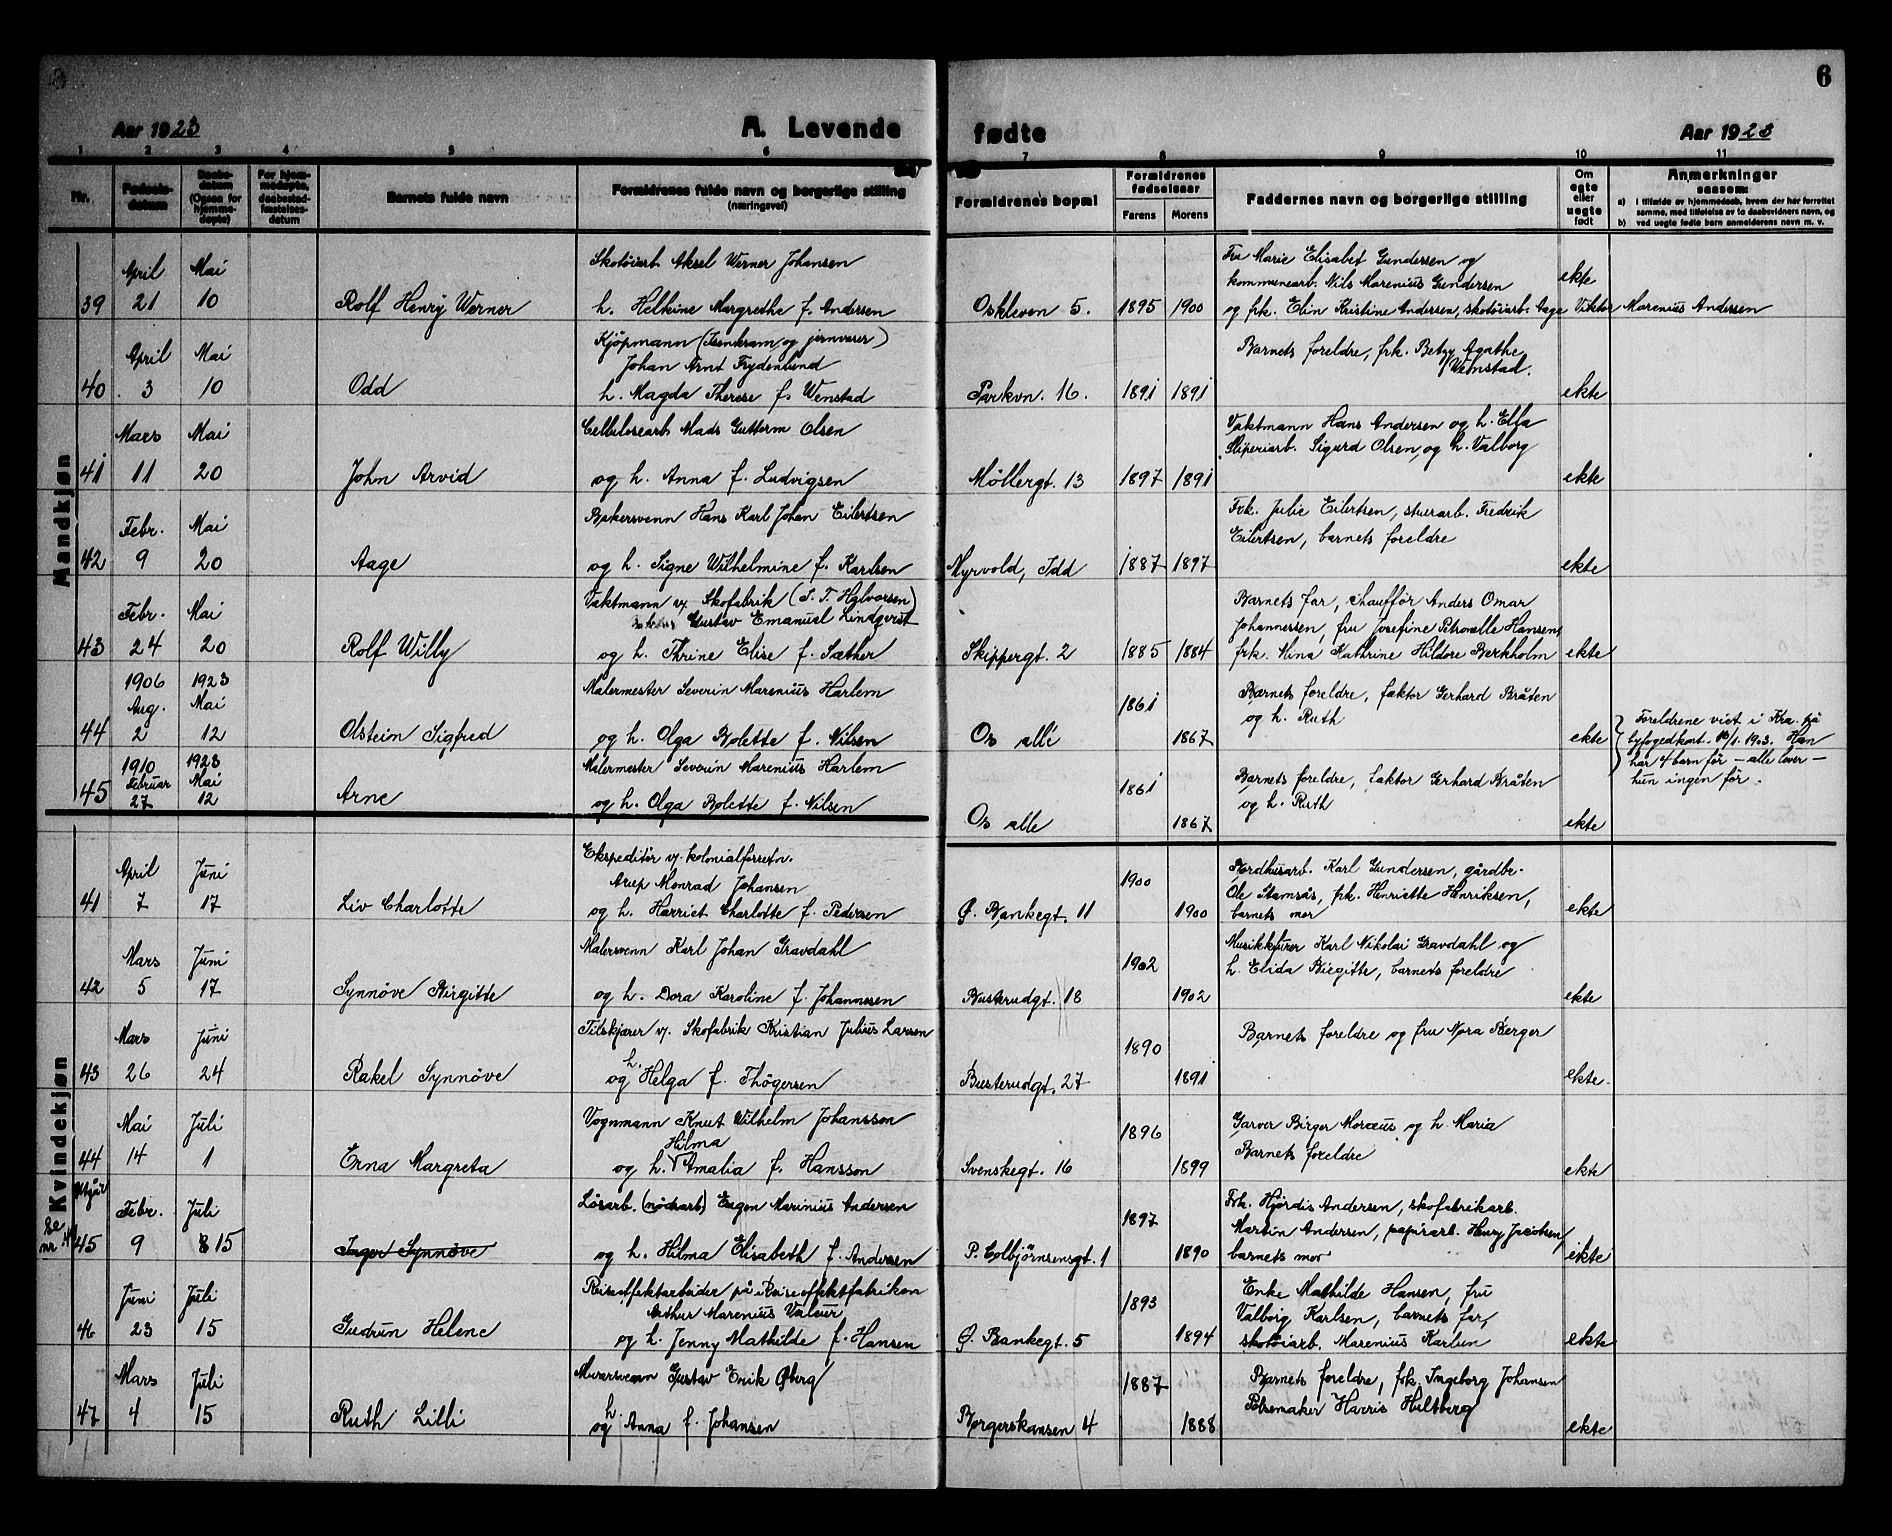 6
Aar 1923 A. Levende fødte Aar 1923
1 2 3 4 5 6 7 8 9 10 11
Nr.
Fødsels-
datum
Daabs-
datum
(Ogsaa for
hjemme-
døpte)
For hjem-
medøpte,
daabsstad-
fæstelses-
datum
Barnets fulde navn
Forældrenes fulde navn og borgerlige stilling
(næringsvei)
Forældrenes bopæl
Forældrenes
fødselsaar
Farens Morens
Faddernes navn og borgerlige stilling
Om
egte
eller
uegte
født
Anmerkninger
saasom:
a) i tilfælde av hjemmedaab, hvem der har forrettet
samme, med tilføielse av to daabsvidners navn, og
b) ved uegte fødte barn anmelderens navn m. v.
Mandkjøn
39
April
21
Mai
10
Rolf Henry Werner
Skotøiarb. Aksel Werner Johansen
h. Helkine Margrethe f. Andersen
Oskleven 5.
1895 1900
Fru Marie Elisabet Gundersen og
kommunearb. Nils Marenius Gundersen
og frk. Elin Kristine Andersen, skotøiarb. Aage Viktor Marenius Andersen
ekte
40
April
3
Mai
10
Odd
Kjøpmann (Isenkram og jernvarer)
Johan Arnt Frydenlund
h. Magda Therese f. Wenstad
Parkvn. 16.
1891 1891
Barnets foreldre, frk. Betzy Agathe
Wenstad.
ekte
41
Mars
11
Mai
20
John Arvid
Cellulosearb Mads Guttorm Olsen
og h. Anna f. Ludvigsen
Møllergt. 13
1897 1891
Vaktmann Hans Andersen og h. Elfa
Sliperiarb. Sigurd Olsen, og h. Valborg
ekte
42
Febr.
9
Mai
20
Aage
Bakersvenn Hans Karl Johan Eilertsen
og h. Signe Wilhelmine f. Karlsen
Myrvold, Idd
1887 1897
Frk. Julie Eilertsen, stuerarb. Fredrik
Eilertsen, barnets foreldre
ekte
43
Febr.
24
Mai
20
Rolf Willy
Vaktmann v. Skofabrik (S. T. Halvorsen)
Gustav Emanuel Lindqvist
og h. Thrine Elise f. Sæther
Skippergt. 2
1885 1884
Barnets far, chauffør Anders Omar
Johannessen, fru Josefine Petronelle Hansen,
frk. Mina Kathrine Hildore Berkholm
ekte
44
1906
Aug.
2
1923
Mai
12
Olstein Sigfred
Malermester Severin Marenius Harlem
og h. Olga Bolette f. Nilsen
Os allé
1861
1867
Barnets foreldre, faktor Gerhard Bråten
og h. Ruth
ekte
Foreldrene viet i Kra. på
byfogedkont. 10/1. 1903. Han
har 4 barn før — alle lever —
hun ingen før.
45
1910
Februar
27
1923
Mai
12
Arne
Malermester Severin Marenius Harlem
og h. Olga Bolette f. Nilsen
Os alle
1861
1867
Barnets foreldre, faktor Gerhard Bråten
og h. Ruth
ekte
Kvindekjøn
41
April
7
Juni
17
Liv Charlotte
Ekspeditør v. kolonialforretn.
Arup Monrad Johansen
og h. Harriet Charlotte f. Pedersen
Ø. Bankegt. 11
1900
1900
Karl Gundersen, gårdbr.
Ole Stamsås, frk. Henriette Henriksen,
barnets mor
ekte
42
Mars
5
Juni
17
Synnøve Birgitte
Malersvenn Karl Johan Gravdahl
og h. Dora Karoline f. Johannesen
Busterudgt. 18
1902
1902
Musikkfører Karl Nikolai Gravdahl og
h. Elida Birgitte, barnets foreldre
ekte
43
Mars
26
Juni
24
Rakel Synnøve
Tilskjærer v. Skofabrik Kristian Julius Larsen
h.
og Helga f. Thøgersen
Busterudgt. 27
1890
1891
Barnets foreldre og fru Nora Berger
ekte.
44
Mai
14
Juli
1
Erna Margreta
Vognmann Knut Wilhelm Johansson
Hilma
og h. Amalia f. Hansson
Svenskegt. 16
1896
1899
Garver Birger Moræus og h. Maria
Barnets foreldre
ekte
Se
nr.
45
Febr.
9
Juli
8 15
Inger Synnøve
Løsarb. (nødsarb) Eugen Marinius Andersen
og h. Hilma Elisabeth f. Andersen
P. Colbjørnsensgt. 1
1897
1890
Frk. Hjørdis Andersen, skofabrikarb.
Martin Andersen, papirarb. Henry Jacobsen,
barnets mor
ekte
46
Juni
23
Juli
15
Gudrun Helene
Reiseeffektarbeider på Reiseeffektfabrikken
Arthur Marenius Valeur
og h. Jenny Mathilde f. Hansen
Ø. Bankegt. 5
1893
1894
Enke Mathilde Hansen, fru
Valborg Karlsen, barnets far,
skotøiarb. Marenius Karlsen
ekte
47
Mars
4
Juli
15
Ruth Lilli
Murersvenn Gustav Enik Øberg
h.
og Anna f. Johansen
Borgerskansen 4
1887
1888
Barnets foreldre, frk. Ingeborg Johansen
Pølsemaker Harris Hultberg
ekte